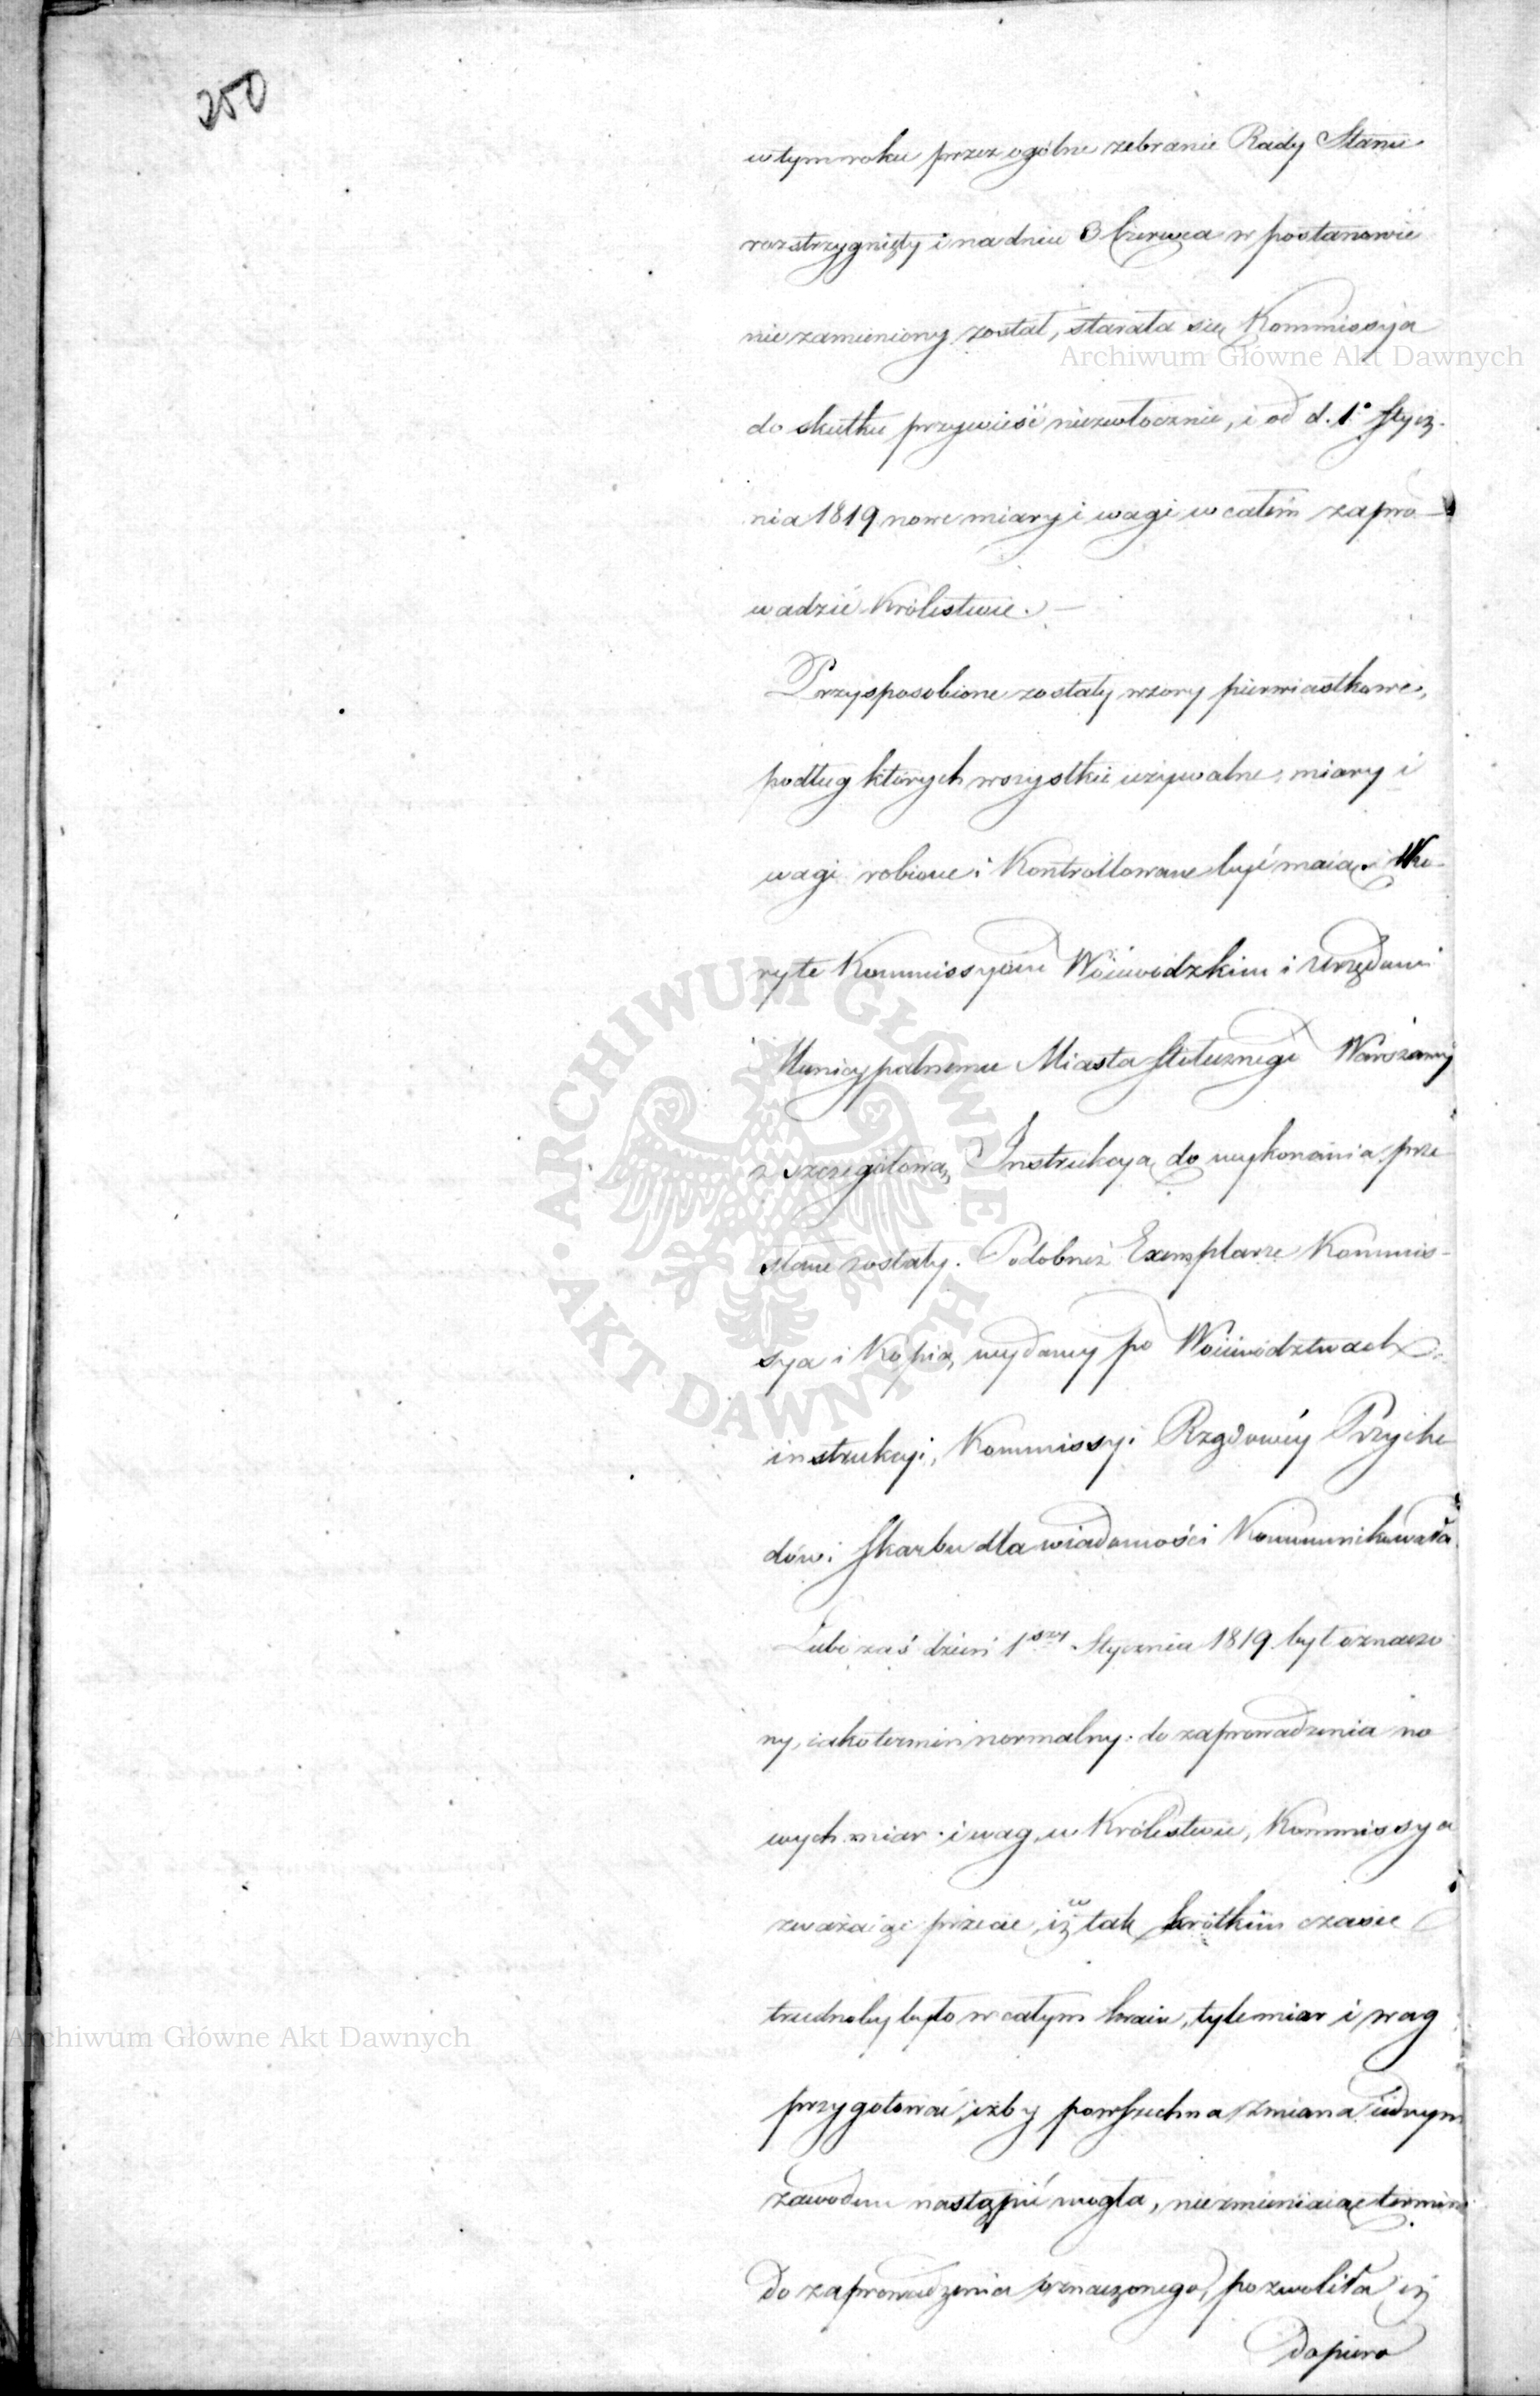 250
w tym roku przez ogólne zebranie Rady Stanu
rozstrzygnięty i na dniu 3 Czerwca w postanowie
nie zamieniony został, starała się Kommissyia
Archiwum Główne Akt Dawnych
do skutku przywieść niezwłocznie, i od d. 1° Stycz-
nia 1819 nowe miary i wagi w całém zapro-
wadzić Królestwie. —
Przysposobione zostały wzory pierwiastkowe,
podług których wszystkie używalne miary i
wagi robione i Kontrollowane być maią i Kto-
ryte Kommissyom Woiewódzkim i Urzędowi
Municypalnemu Miasta Stołecznego Warszawy
z szczegółową Instrukcyą do wykonania prze
słane zostały. Podobneż Exemplarze Kommis-
sya i Kopią, wydaney po Woiewództwach
instrukcyi, Kommissyi Rządowéy Przycho
dów i Skarbu dla wiadomości Kommunikowała.
Lubo zaś dzień 1szy Stycznia 1819 był oznaczo
ny, iako termin normalny do zaprowadzenia no
wych miar i wag w Królestwie, Kommissya
zważaiąc przecie, iż w tak krótkim czasie
trudnoby było w całym kraiu, tyle miar i wag
Archiwum Główne Akt Dawnych
przygotować, iżby powszechna zmiana iednym
zawodem nastąpić mogła, niezmieniaiąc terminu
do zaprowadzenia oznaczonego, pozwoliła, iż
dopiero
ARCHIWUM GŁÓWNE • AKT DAWNYCH •